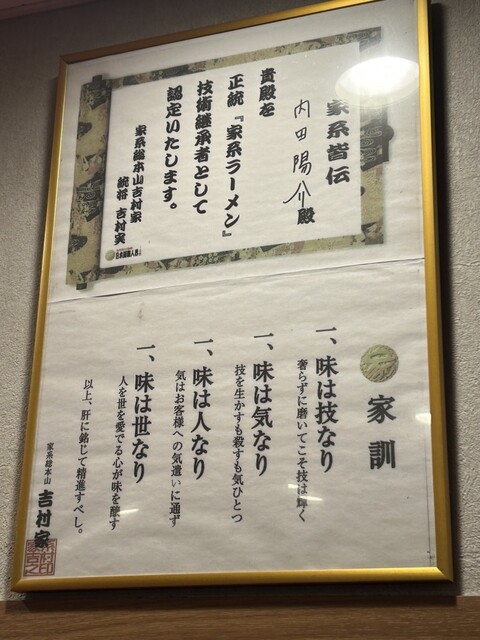 家系皆伝
内田陽介殿
貴殿を
正統『家系ラーメン』
技術継承者として
認定いたします。
家系総本山吉村家
統将 吉村実
家訓
一、味は技なり
奢らずに磨いてこそ技は輝く
一、味は気なり
技を生かすも殺すも気ひとつ
一、味は人なり
気はお客様への気遣いに通ず
一、味は世なり
人を世を愛でる心が味を醸す
以上、肝に銘じて精進すべし。
家系総本山 吉村家